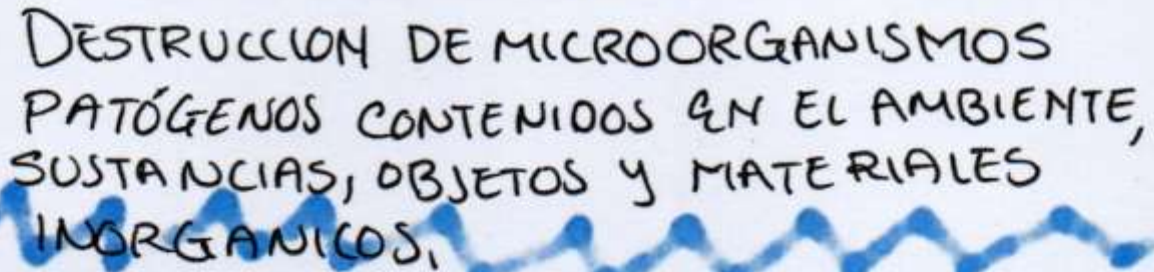 DESTRUCCION DE MICROORGANISMOS
PATÓGENOS CONTENIDOS EN EL AMBIENTE,
SUSTANCIAS, OBJETOS Y MATERIALES
INORGANICOS.